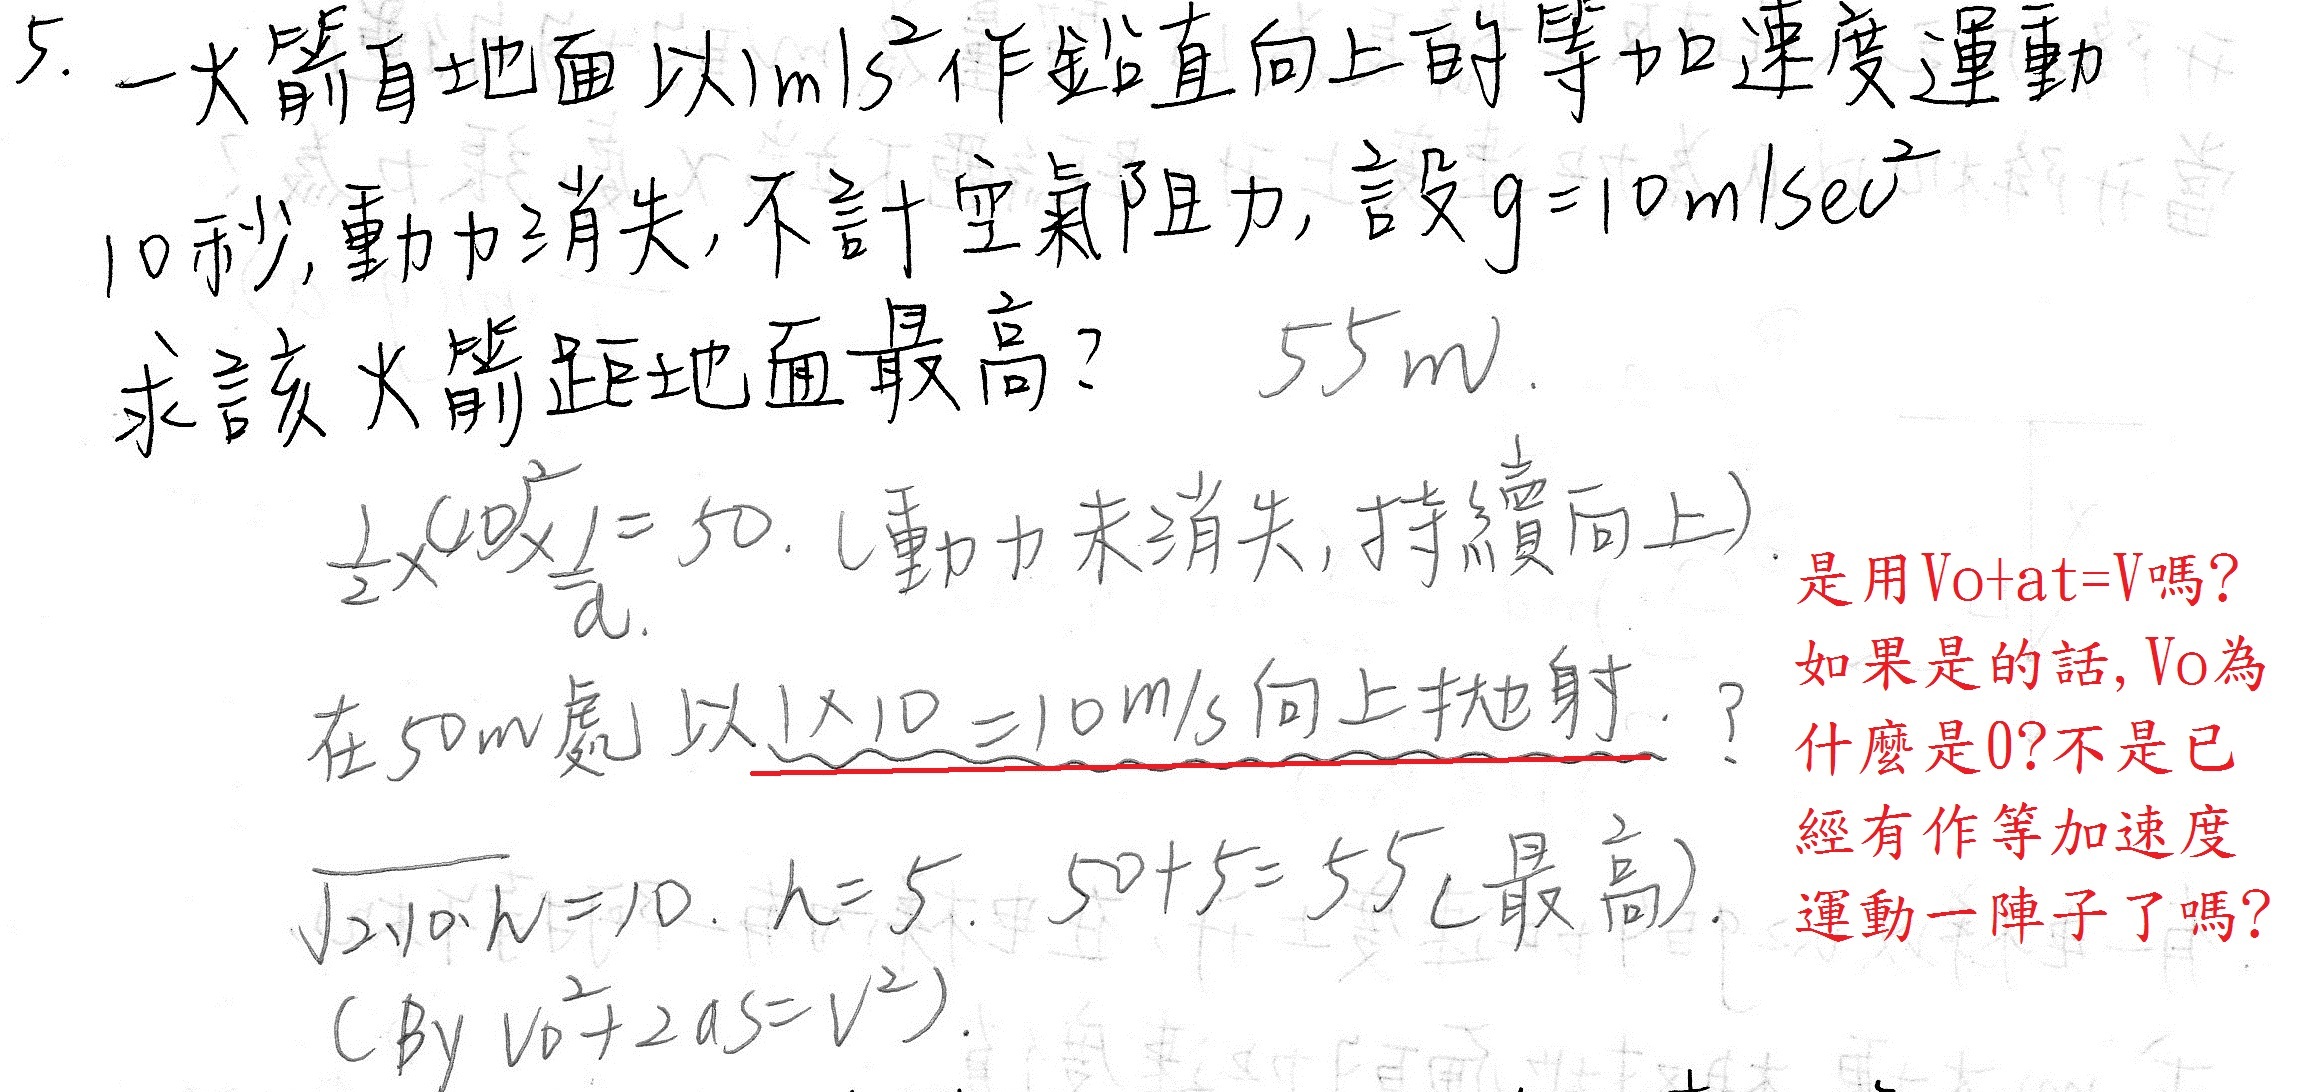 5. 一火箭自地面以1m/s²作鉛直向上的等加速度運動
10秒,動力消失,不計空氣阻力,設g=10m/sec²
求該火箭距地面最高? 55m.
½×(10)²×1=50.(動力未消失,持續向上).
a.
在50m處以1×10=10m/s向上拋射.?
√2·10·h=10. h=5. 50+5=55(最高).
(By V₀²+2as=V²).
是用Vo+at=V嗎?
如果是的話,Vo為
什麼是0?不是已
經有作等加速度
運動一陣子了嗎?